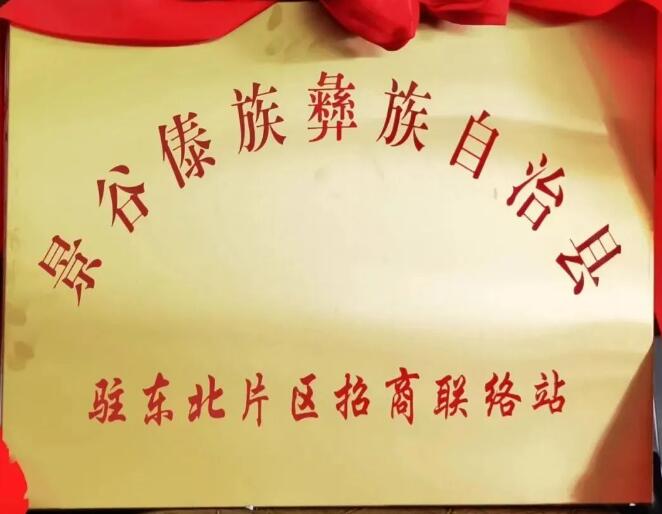 景谷傣族彝族自治县
驻东北片区招商联络站